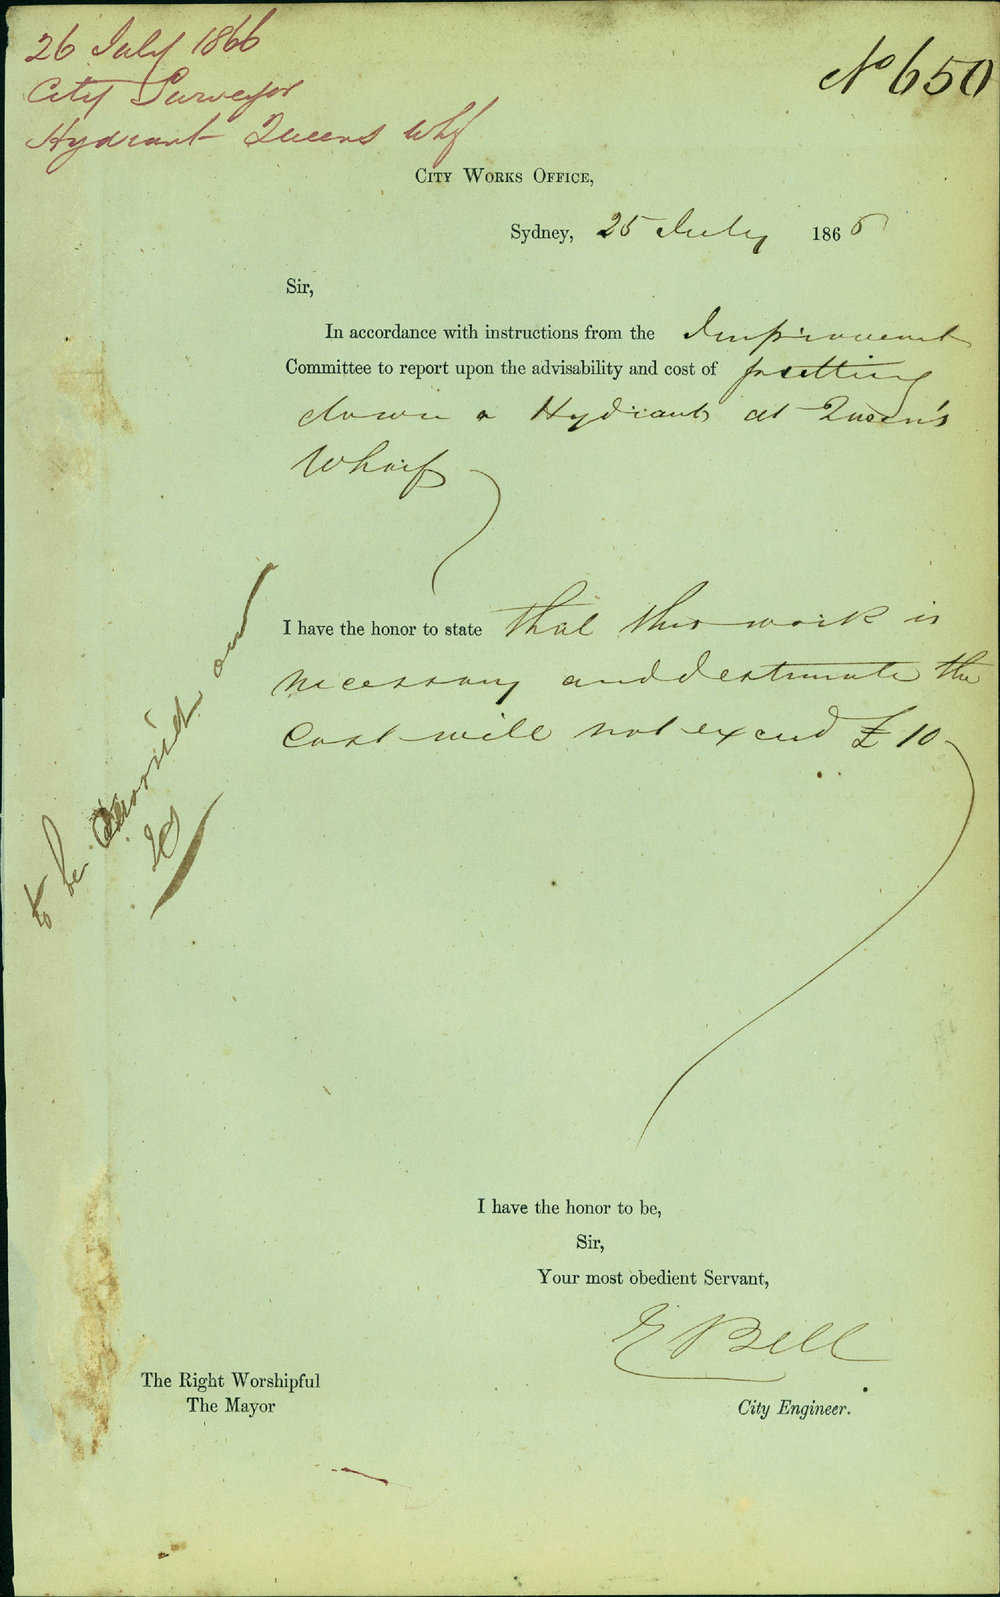 26 July 1866
City Surveyor
Hydrant Queens Whf
No 650
City Works Office,
Sydney, 25 July 1866
Sir,
In accordance with instructions from the Improvement
Committee to report upon the advisability and cost of putting
down a Hydrant at Queen's
Wharf
I have the honor to state that this work is
necessary and estimate the
Cost will not exceed £10
to be carried out
I have the honor to be,
Sir,
Your most obedient Servant,
E Bell
The Right Worshipful
The Mayor
City Engineer.